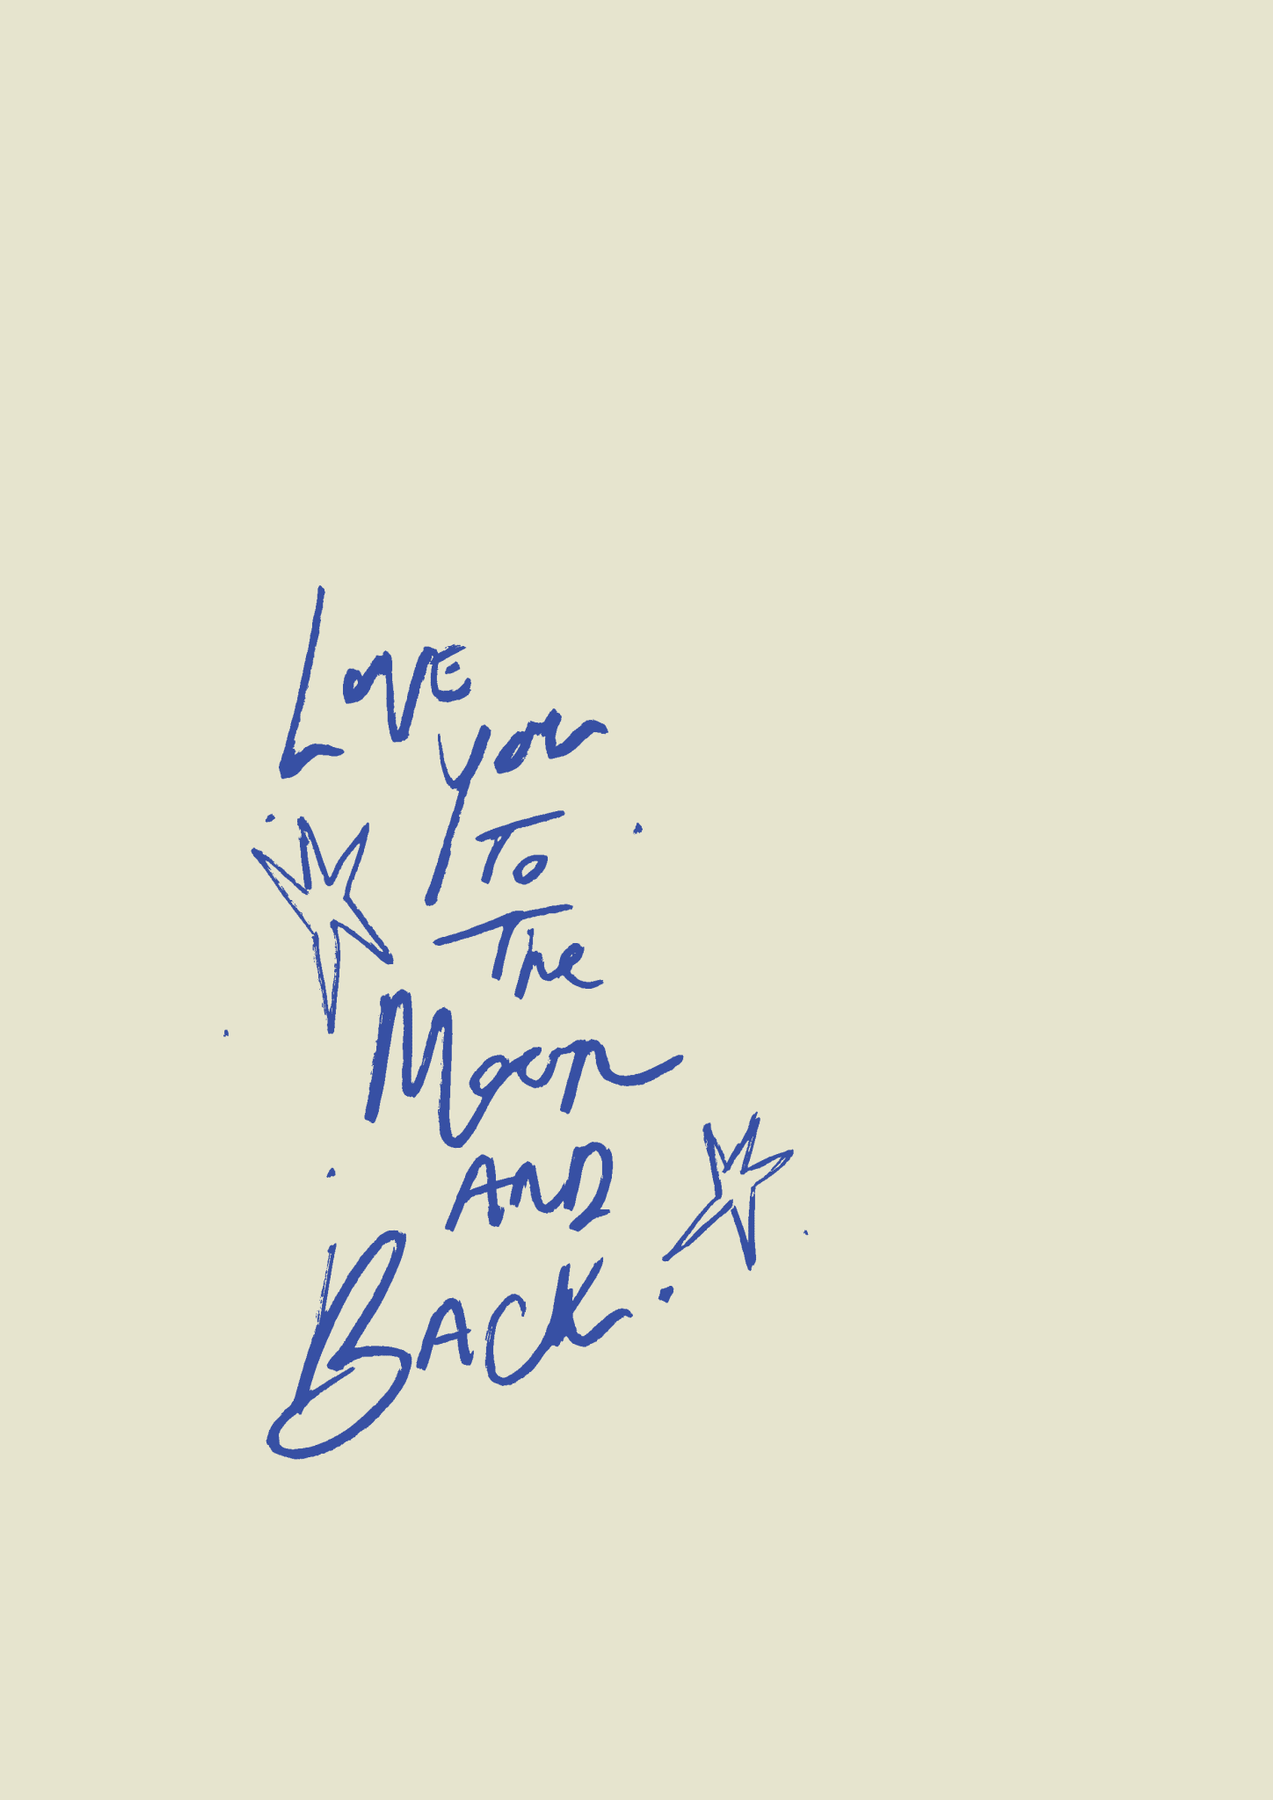 Love
You
To
The
Moon
AND
BACK.